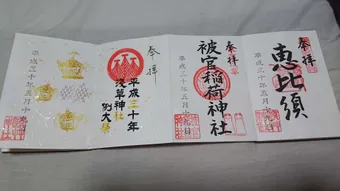 奉拝
恵比須
平成三十年五月十九日
奉拝
被官稲荷神社
平成三十年五月十九日
奉拝
平成三十年
浅草神社
例大祭
平成三十年五月十九日